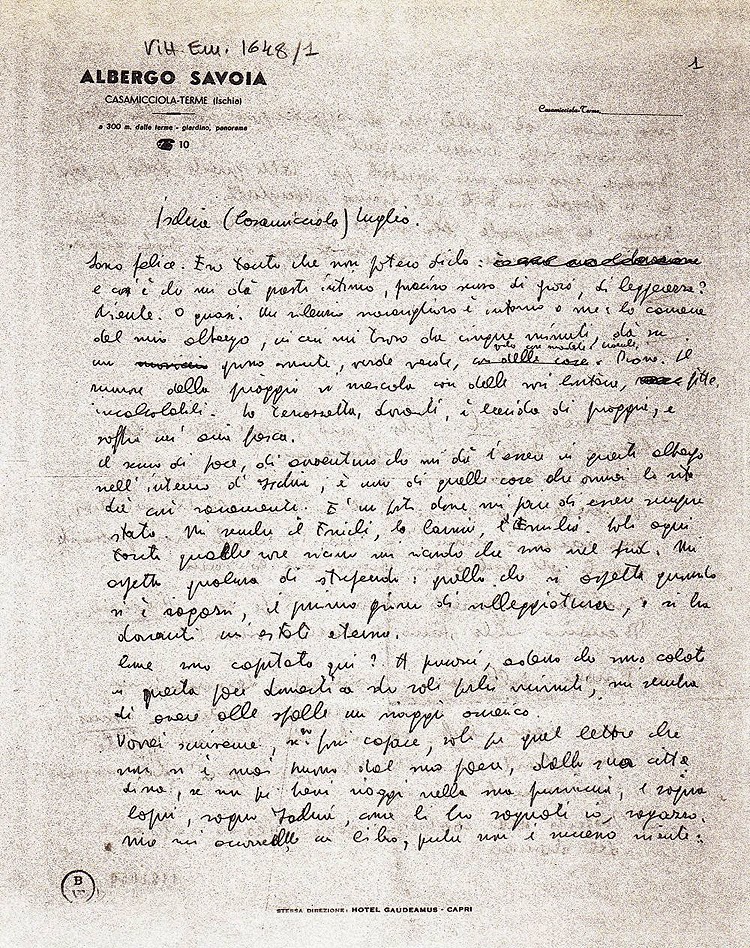 Vitt. Em. 1648/1
1
ALBERGO SAVOIA
CASAMICCIOLA-TERME (Ischia)
a 300 m. dalle terme - giardino, panorama
☎ 10
Casamicciola-Terme,
Ischia (Casamicciola) luglio.
Sono felice. Era tanto che non potevo dirlo:
e cos'è che mi dà questo intimo, preciso senso di gioia, di leggerezza?
Niente. O quasi. Un silenzio meraviglioso è intorno a me: la camera
del mio albergo, in cui mi trovo da cinque minuti, dà su
un grosso monte, verde verde, Piove. Il
rumore della pioggia si mescola con delle voci lontane, fitte,
incalcolabili. La terrazzetta, davanti, è lucida di pioggia, e
soffia un' aria fresca.
Il senso di pace, di avventura che mi dà l'essere in questo albergo
nell' interno di Ischia, è una di quelle cose che ormai la vita
dà così raramente. È un posto dove mi pare di essere sempre
stato. Mi sembra il Friuli, la Carnia, l'Emilia. Solo ogni
tanto qualche voce vicina mi ricorda che sono nel Sud. Mi
aspetta qualcosa di stupendo: quello che si aspetta quando
si è ragazzi, il primo giorno di villeggiatura, e si ha
davanti un'estate eterna.
Come sono capitato qui? A pensarci, adesso che sono calato
in questa pace domestica da soli pochi minuti, mi sembra
di avere alle spalle un viaggio omerico.
Vorrei scriverne, se ne fossi capace, solo per quel lettore che
non si è mai mosso dal suo paese, dalla sua città-
dina, se non per brevi viaggi nella sua provincia, e sogna
Capri, sogna Ischia, come li ho sognati io, ragazzo.
Ma mi occorrerebbe un libro, perché non è successo niente:
B
STESSA DIREZIONE: HOTEL GAUDEAMUS - CAPRI